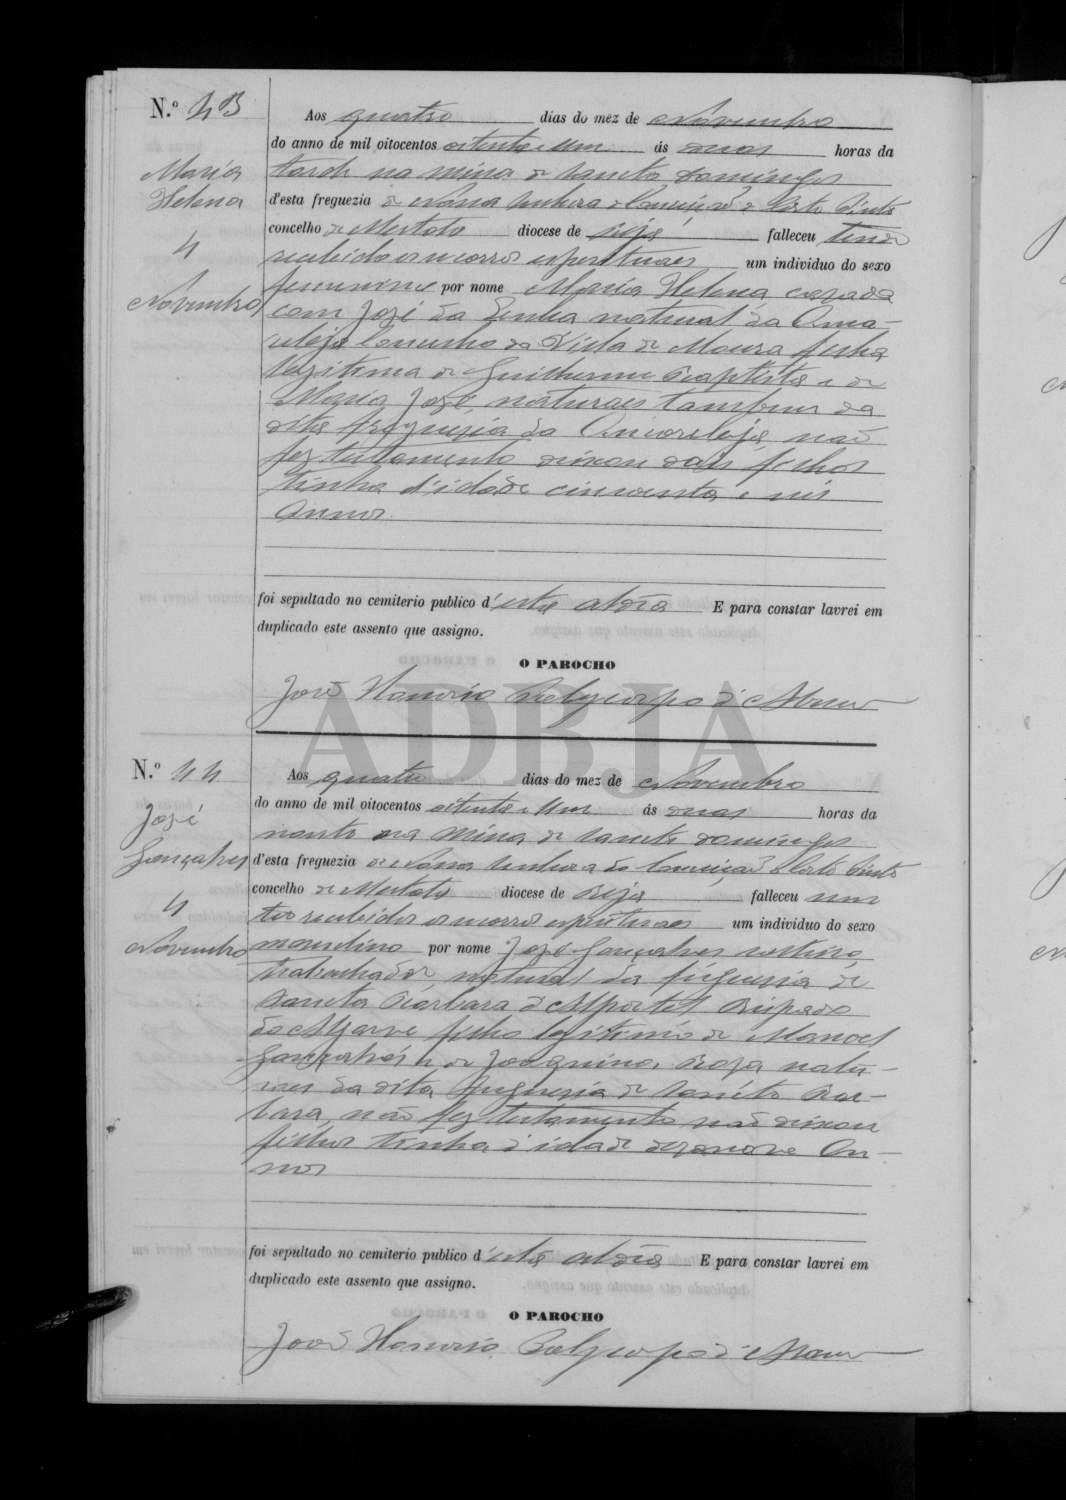 N.º 43
Maria
Helena
4
Novembro
Aos quatro dias do mez de Novembro
do anno de mil oitocentos oitenta e Um ás duas horas da
tarde na mina de Sancto Domingos
d'esta freguezia de Nossa Senhora Conceição
concelho de Mertola diocese de Beja falleceu tendo
recebido os socorros espirituaes um individuo do sexo
femenino por nome Maria Helena cazada
com José da natural da Ama-
releja Concelho da Villa de Moura filha
legitima de Guilherme Baptista e de
Maria José, naturaes tambem da
dita freguezia da Amareleja não
fez testamento deixou dois filhos
tinha d'idade cincoenta e seis
Annos
foi sepultado no cemiterio publico d'esta aldêa E para constar lavrei em
duplicado este assento que assigno.
O PAROCHO
José Honorio Polycarpo d'Abreu
ADBJA
N.º 44
José
Gonçalves
4
Novembro
Aos quatro dias do mez de Novembro
do anno de mil oitocentos oitenta e Um ás duas horas da
noute na Mina de Sancto Domingos
d'esta freguezia de Nossa Senhora da Conceição
concelho de Mertola diocese de Beja falleceu
recebido os socorros espirituaes um individuo do sexo
masculino por nome José Gonçalves solteiro,
trabalhador, natural da freguezia de
Sancta Barbara d'Alportel Bispado
do Algarve filho legitimo de Manoel
Gonçalves e de Joaquina Roza natu-
raes da dita freguezia de Sancta Bar-
bara, não fez testamento não deixou
filhos tinha d'idade dezanove An-
nos
foi sepultado no cemiterio publico d'esta aldêa E para constar lavrei em
duplicado este assento que assigno.
O PAROCHO
José Honorio Polycarpo d'Abreu